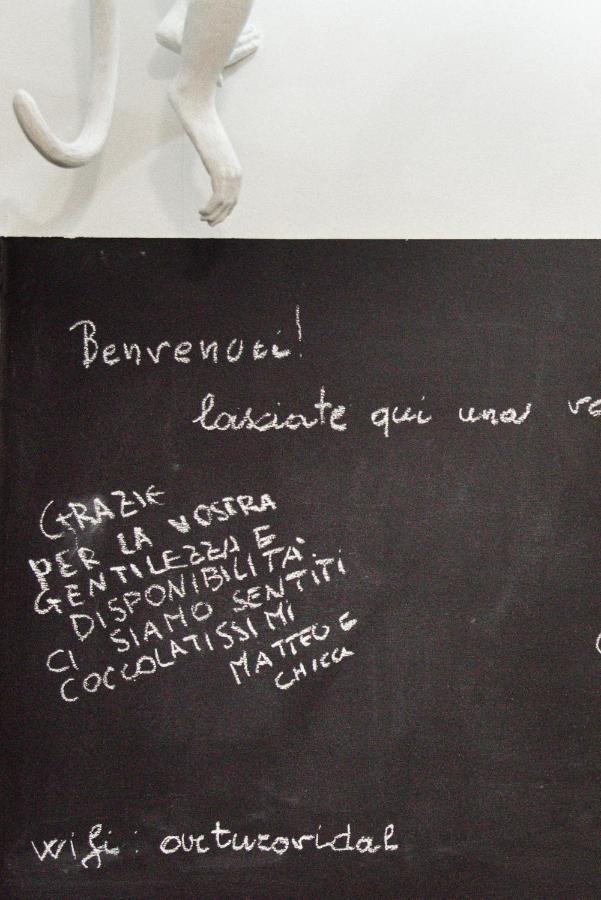 Benvenuti!
lasciate qui una
GRAZIE
PER LA VOSTRA
GENTILEZZA E
DISPONIBILITÀ.
CI SIAMO SENTITI
COCCOLATISSIMI
MATTEO E
CHICCA
wifi: arturovidal